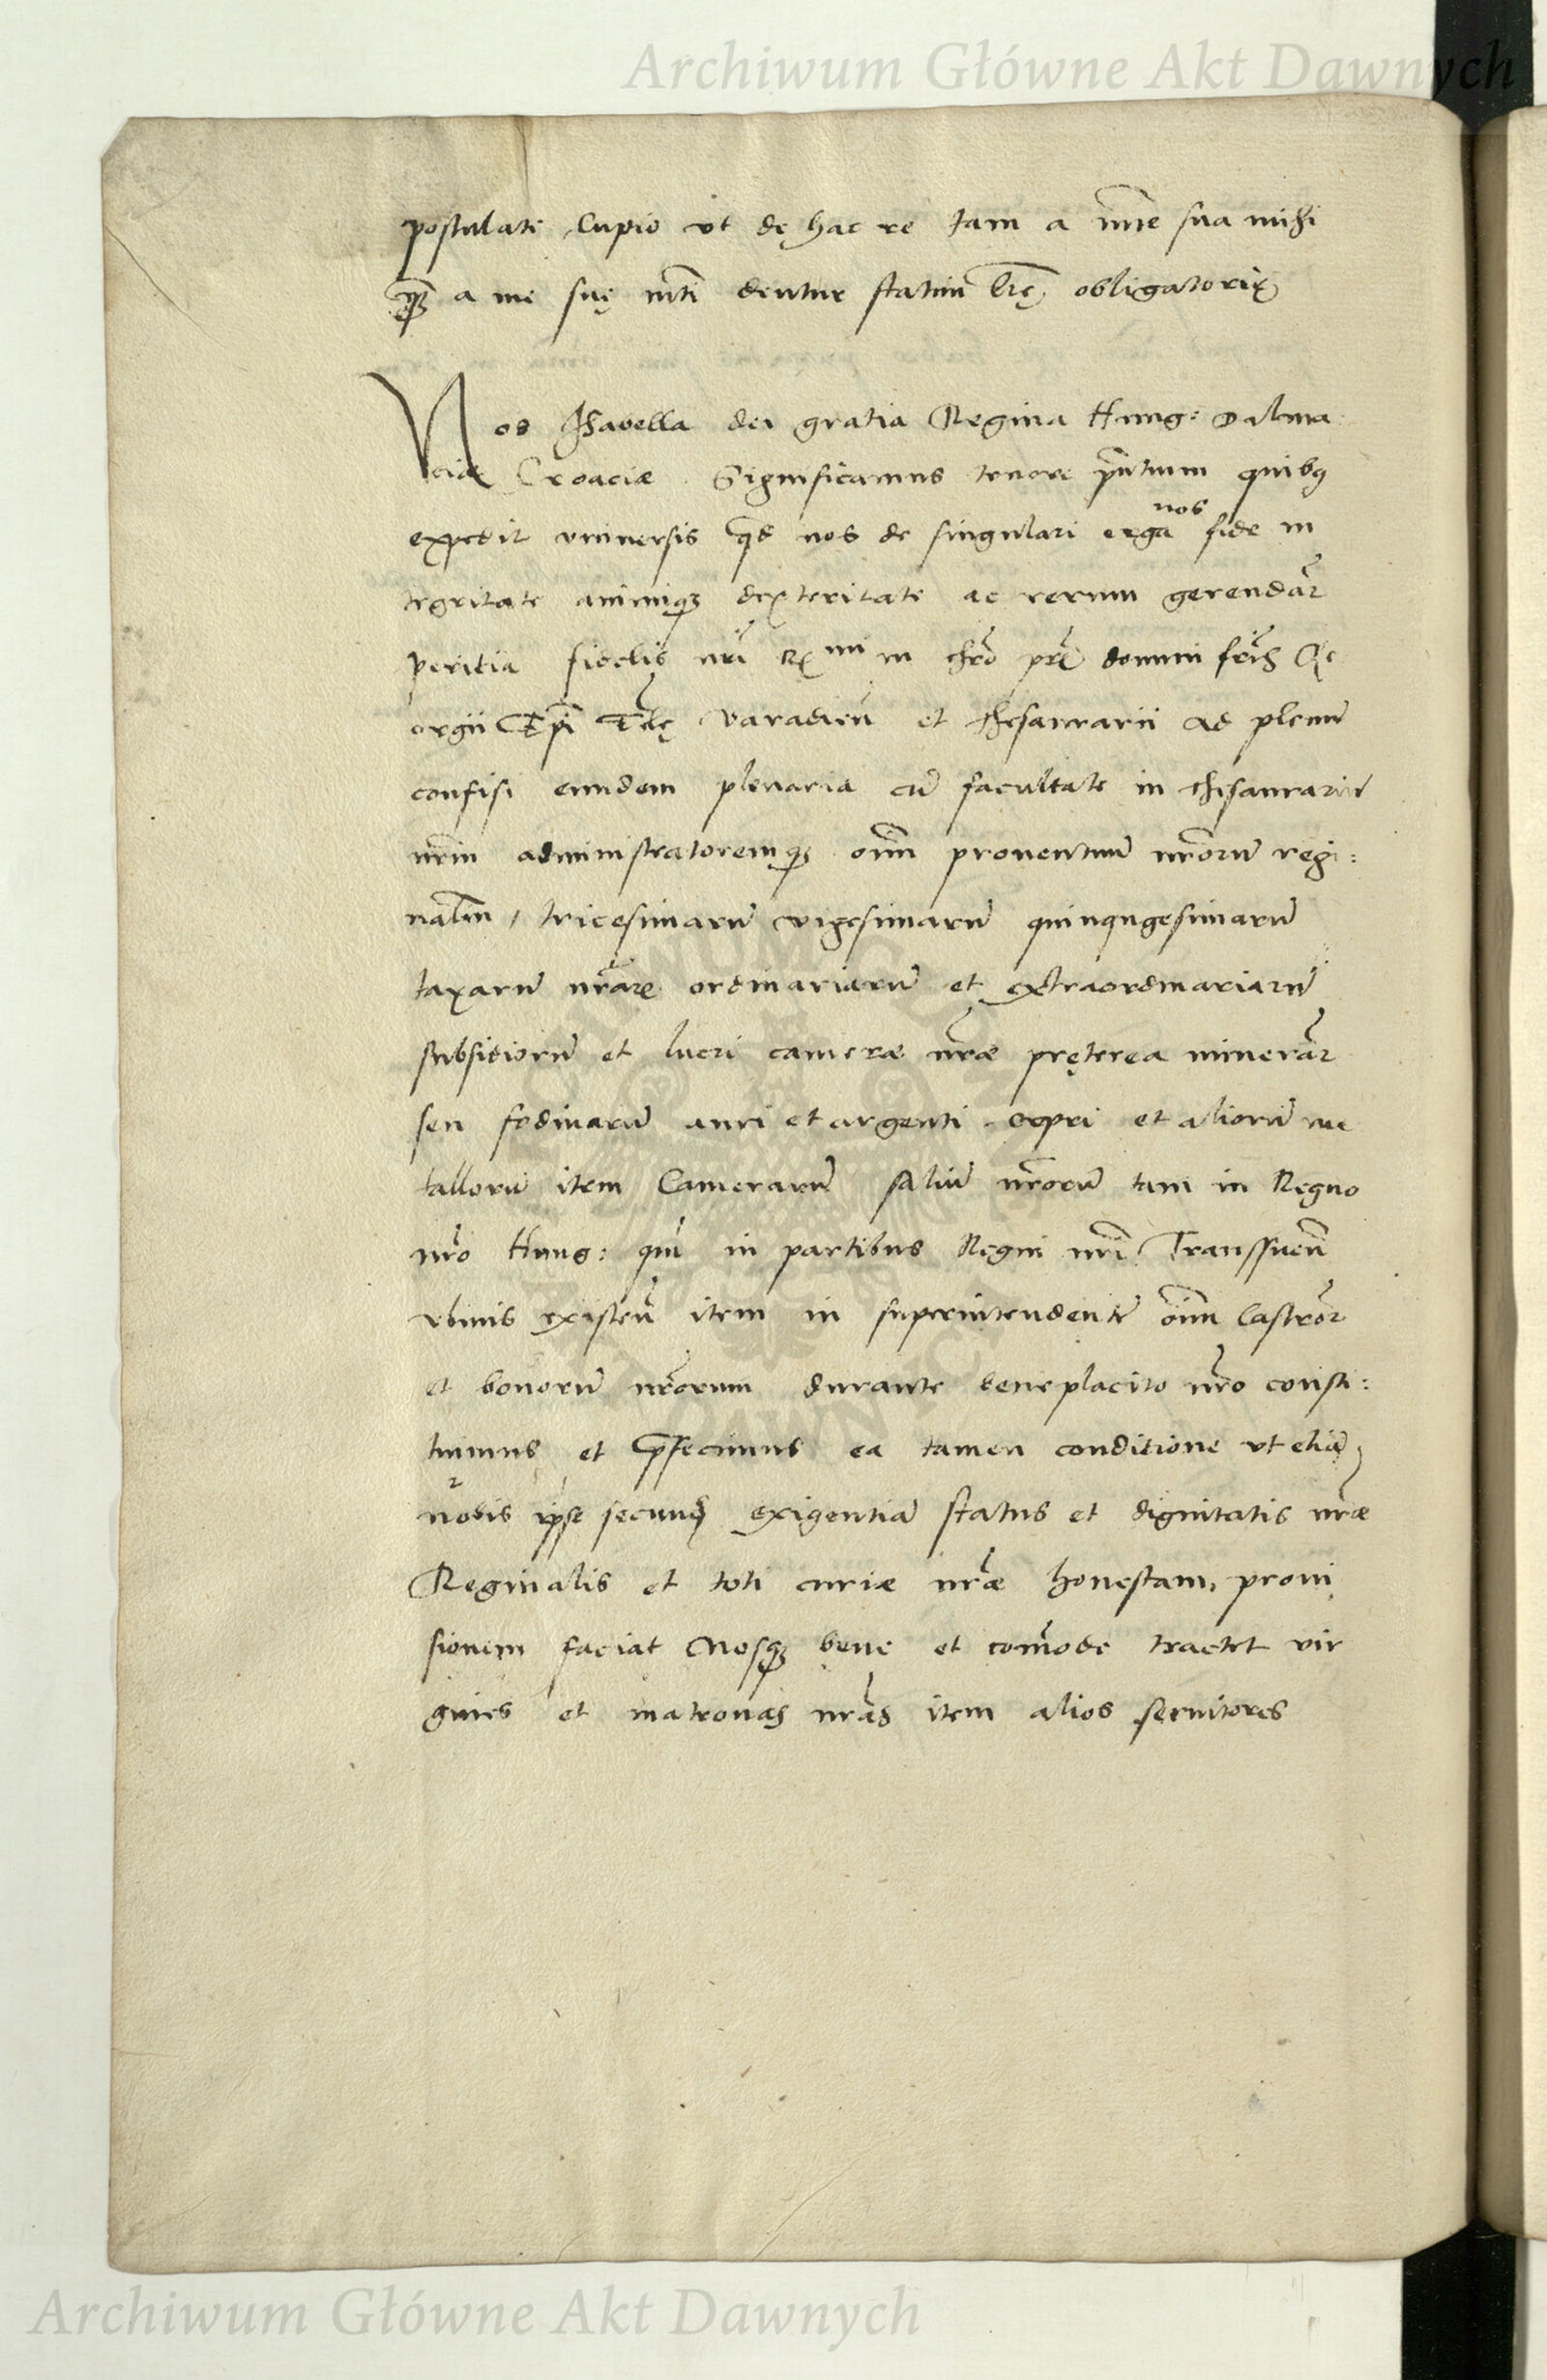 Archiwum Główne Akt Dawnych
postulate, Cupio vt de hac re tam a mte sua mihi
q̃ȝ a me suę mti dentur statim lrę obligatorię
Nos Isabella dei gratia Regina Hung: Dalma
ciæ Croaciæ. Significamus tenore p̃ntium quibꝯ
expedit vniuersis q̃d nos de singulari erga nos fide in
tegritate animiqȝ dexteritate ac rerum gerendar̃
peritia fidelis nrĩ Rmi in chrõ prĩs domini frĩs Ge
orgii Ep̃i Eclę Varadieñ et thesaurarii ad plenũ
confisi eundem plenaria cũ facultate in thesaurariũ
nrm̃ administratoremqȝ oĩm prouentuũ nrõrũ regi:
naliũm, tricesimarũ vigesimarũ quinqugesimarũ
taxarũ nrãrũ ordinariarũ et extraordinariarũ
subsidiorũ et lucri cameræ nrãe pręterea minerar̃
seu fodinarũ auri et argenti cupri et aliorũ me
tallorũ item Camerarũ saliũ nrõrũ tam in Regno
nrõ Hung: quã in partibus Regni nrĩ Transsyluañ
vbiuis existeñ item in superintendentẽ oĩm Castror̃
et bonorũ nrõrum durante beneplacito nrõ consti:
tuimus et p̃fecimus ea tamen conditione vt etiã
nobis ipse secundũ exigentiã status et dignitatis nrãe
Reginalis et toti curiæ nrãe honestam, proui
sionem faciat Nosqȝ bene et com̃ode tractet vir
gines et matronas nrãs item alios seruitores
Archiwum Główne Akt Dawnych